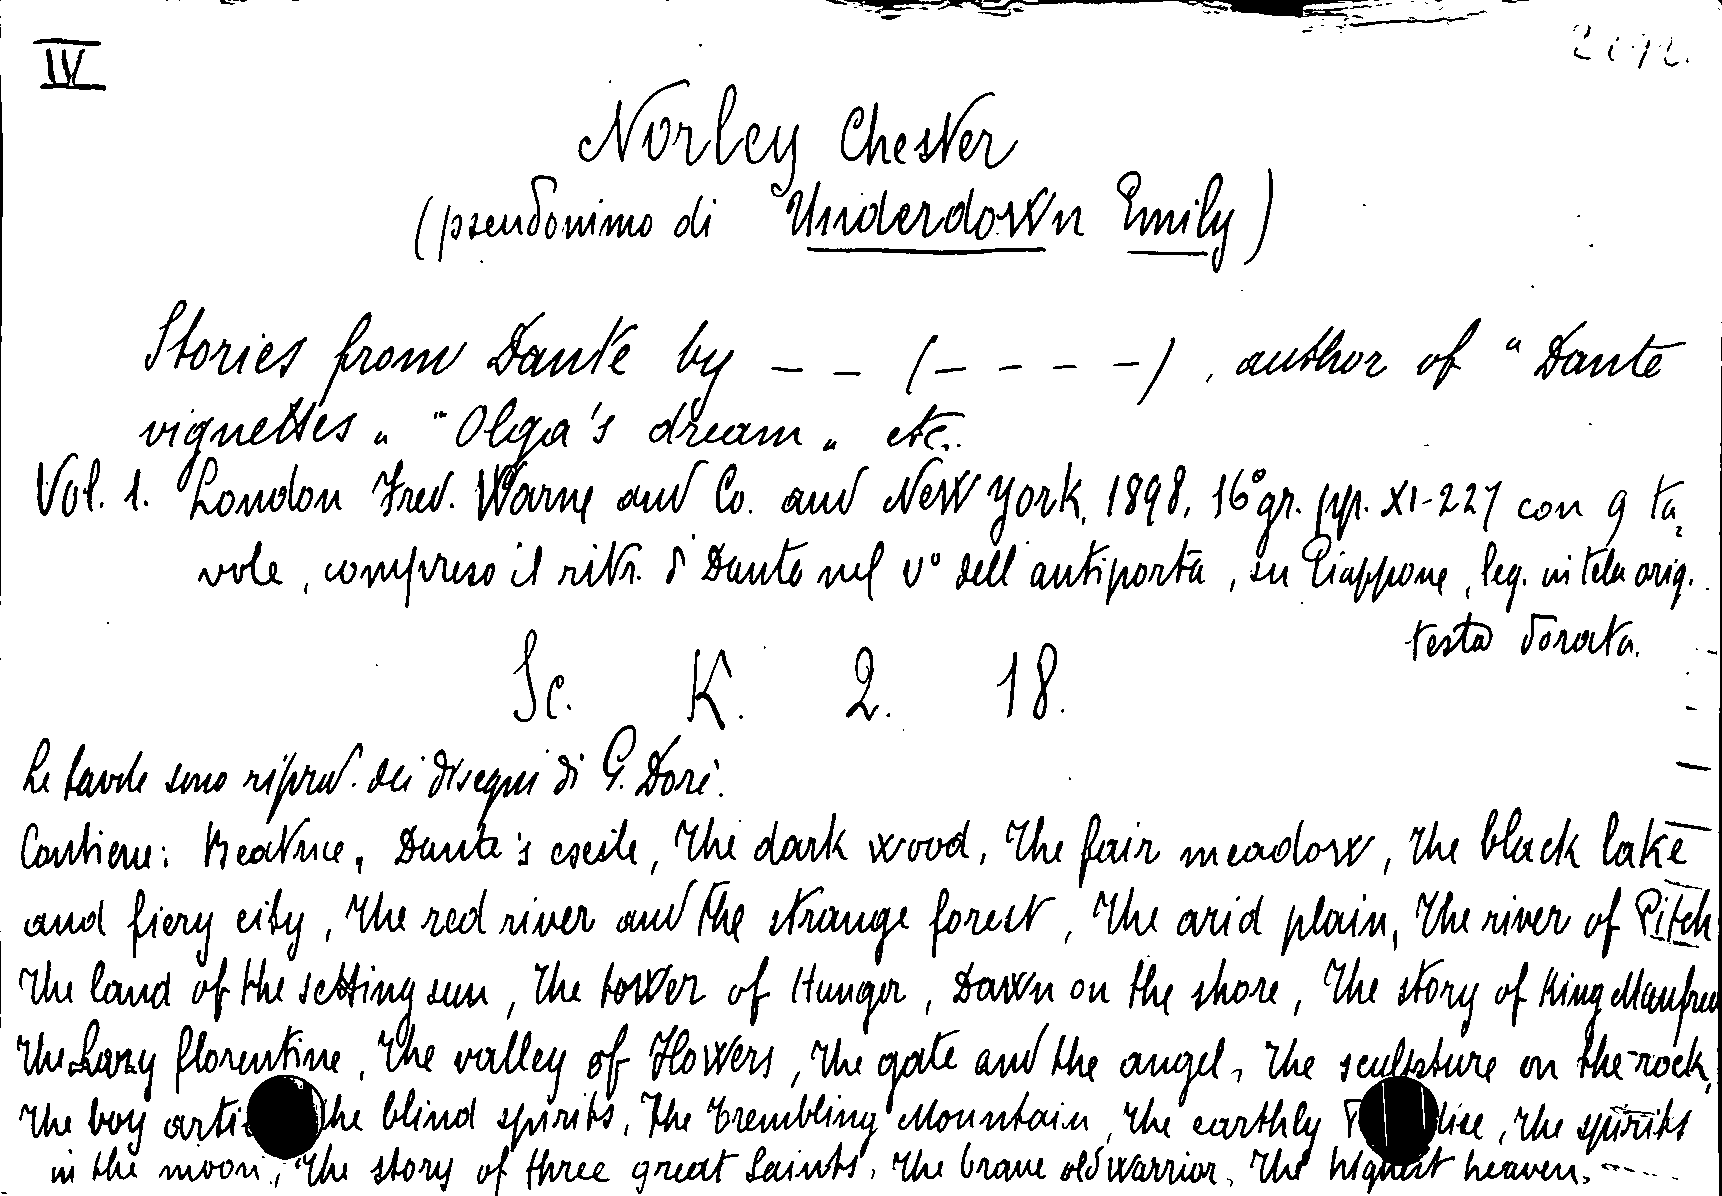 IV
Norley Chester
(pseudonimo di Underdown Emily)
Stories from Dante by - - (- - - - -), author of "Dante
vignettes" "Olga's dream" etc.
Vol. 1. London Fred. Warne and Co. and New York, 1898, 16° gr. pp. XI-227 con 9 ta-
vole, compreso il ritr. di Dante nel v° dell'antiporta, su Giappone, leg. in tela orig.
testa dorata.
Sc. K. 2. 18.
Le tavole sono riprod. dei disegni di G. Doré.
Contiene: Beatrice, Dante's exile, The dark wood, The fair meadow, The black lake
and fiery city, The red river and the strange forest, The arid plain, The river of Pitch
The land of the setting sun, The tower of Hunger, Dawn on the shore, The story of King Manfred
The Lazy florentine, The valley of Flowers, The gate and the angel, The sculpture on the rock,
The boy The blind spirits, The trembling Mountain, The earthly The spirits
in the moon, The story of three great Saints, The brave old warrior, The highest heaven.